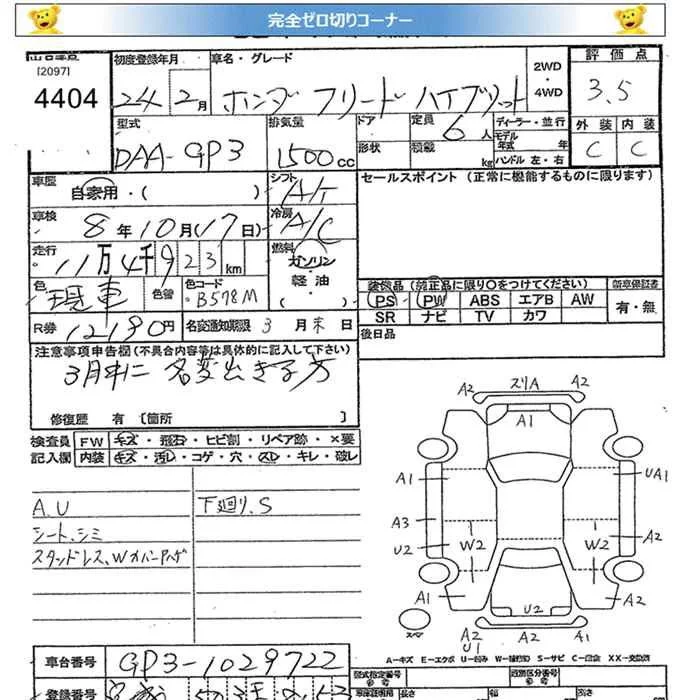 完全ゼロ切りコーナー
出品番号
[2097]
4404
初度登録年月
24年 2月
車名・グレード
ホンダ フリード ハイブリット
2WD
・
4WD
評価点
3.5
外装 内装
C C
型式
DAA-GP3
排気量
1500cc
ドア
形状
定員
6人
積載
kg
ディーラー・並行
モデル年式 年
ハンドル 左・右
車歴
自家用・( )
シフト
A/T
セールスポイント (正常に機能するものに限ります)
車検
8年10月(17日)
冷房
A/C
走行
11万4千923km
燃料
ガソリン・
軽油・
( )
色
現車
色替
色コード
B578M
装備品(純正品に限り○をつけてください)
PS PW ABS エアB AW
SR ナビ TV カワ
新車保証書
有・無
R券
12190円
名変通知期限 3月末日
後日品
注意事項申告欄(不具合内容等は具体的に記入して下さい)
3月中に 名変出きる方
修復歴 有 [箇所 ]
検査員記入欄
FW キズ・飛石・ヒビ割・リペア跡・×要
内装 キズ・汚レ・コゲ・穴・スレ・キレ・破レ
A.U
シート、シミ
スタッドレス、Wカバーハゲ
下廻り.S
A2 スリA A2
A1
A1 UA1
A3 A2
U2 W2 W2
A1 A2
U2
スペア
A2 A2 A1
U1
A-キズ E-エクボ U-凹み W-補修跡 S-サビ C-腐食 XX-交換済
車台番号
GP3-1029722
登録番号
型式指定番号
類別区分番号
長さ